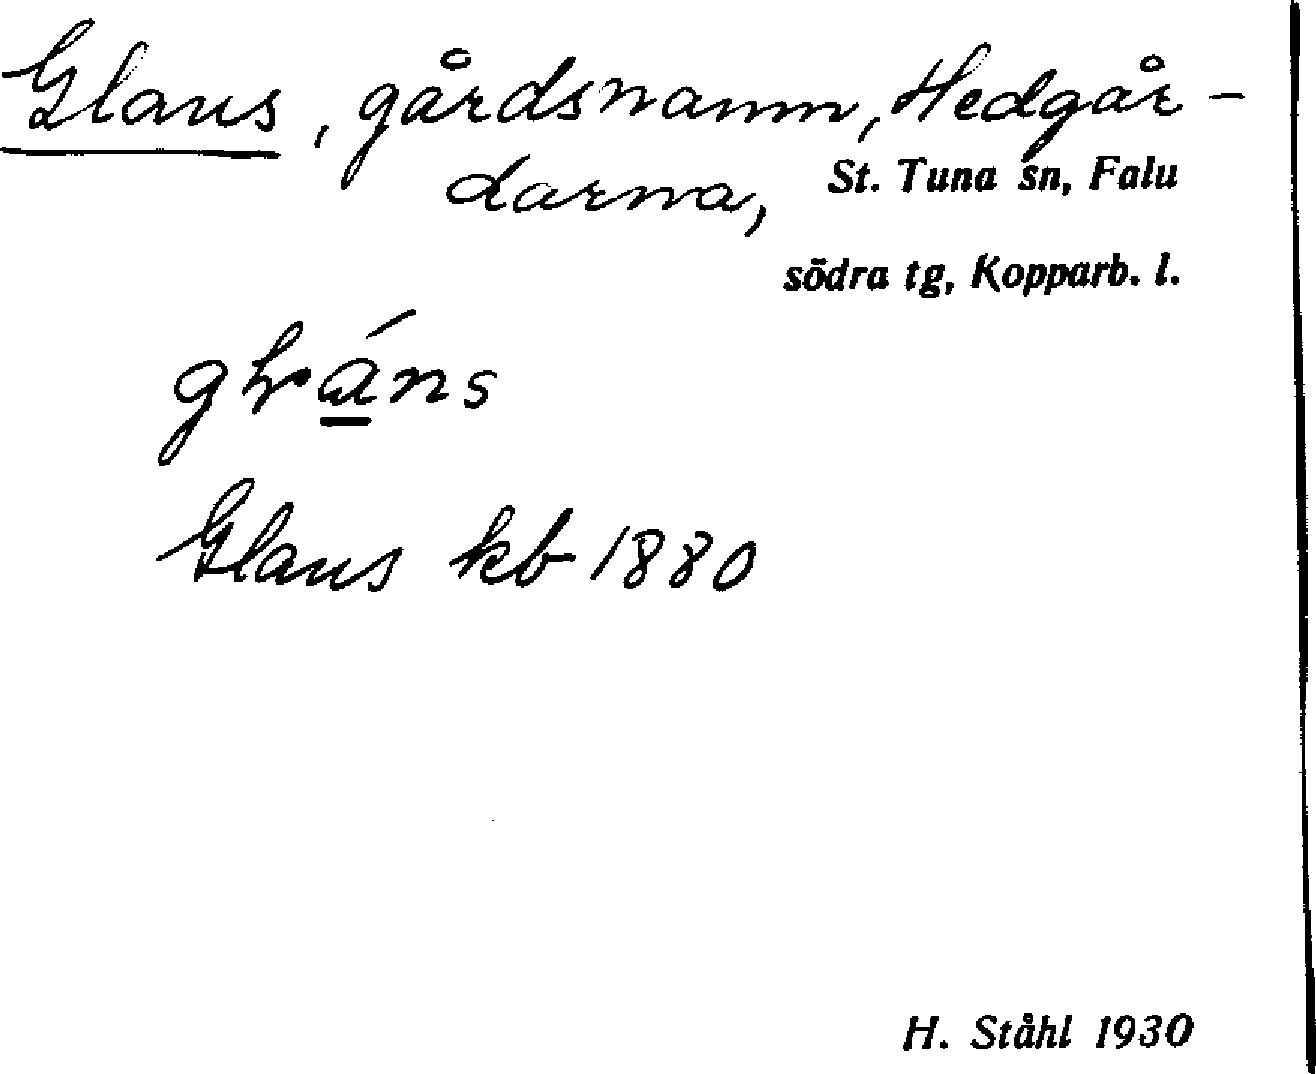 Glans, gårdsnamn, Hedgår-
darna, St. Tuna sn, Falu
södra tg, Kopparb. l.
Glans kb 1880
H. Ståhl 1930